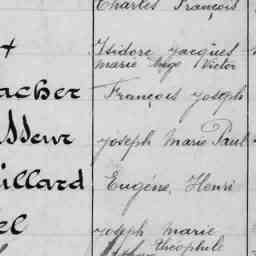 Charles François
t Isidore Jacques
Marie Victor
acher François Joseph
sseur Joseph Marie Paul
illard Eugène, Henri
el Joseph Marie
Théophile